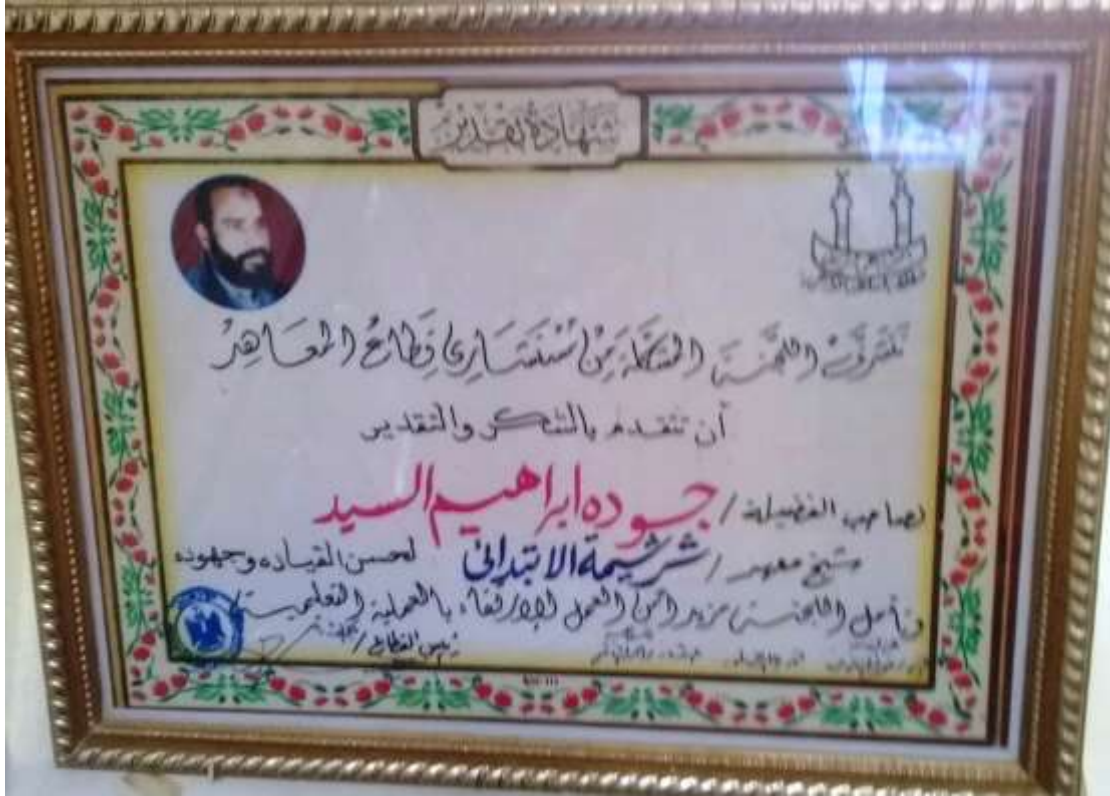 شهادة تقدير
تتشرف اللجنة المشكلة من مستشاري قطاع المعاهد
أن تتقدم بالشكر والتقدير
لصاحب الفضيلة / جوده ابراهيم السيد
شيخ معهد / شرشيمة الابتدائى لحسن القياده وجهوده
وتأمل اللجنة مزيدا من العمل للإرتقاء بالعملية التعليمية
رئيس القطاع /